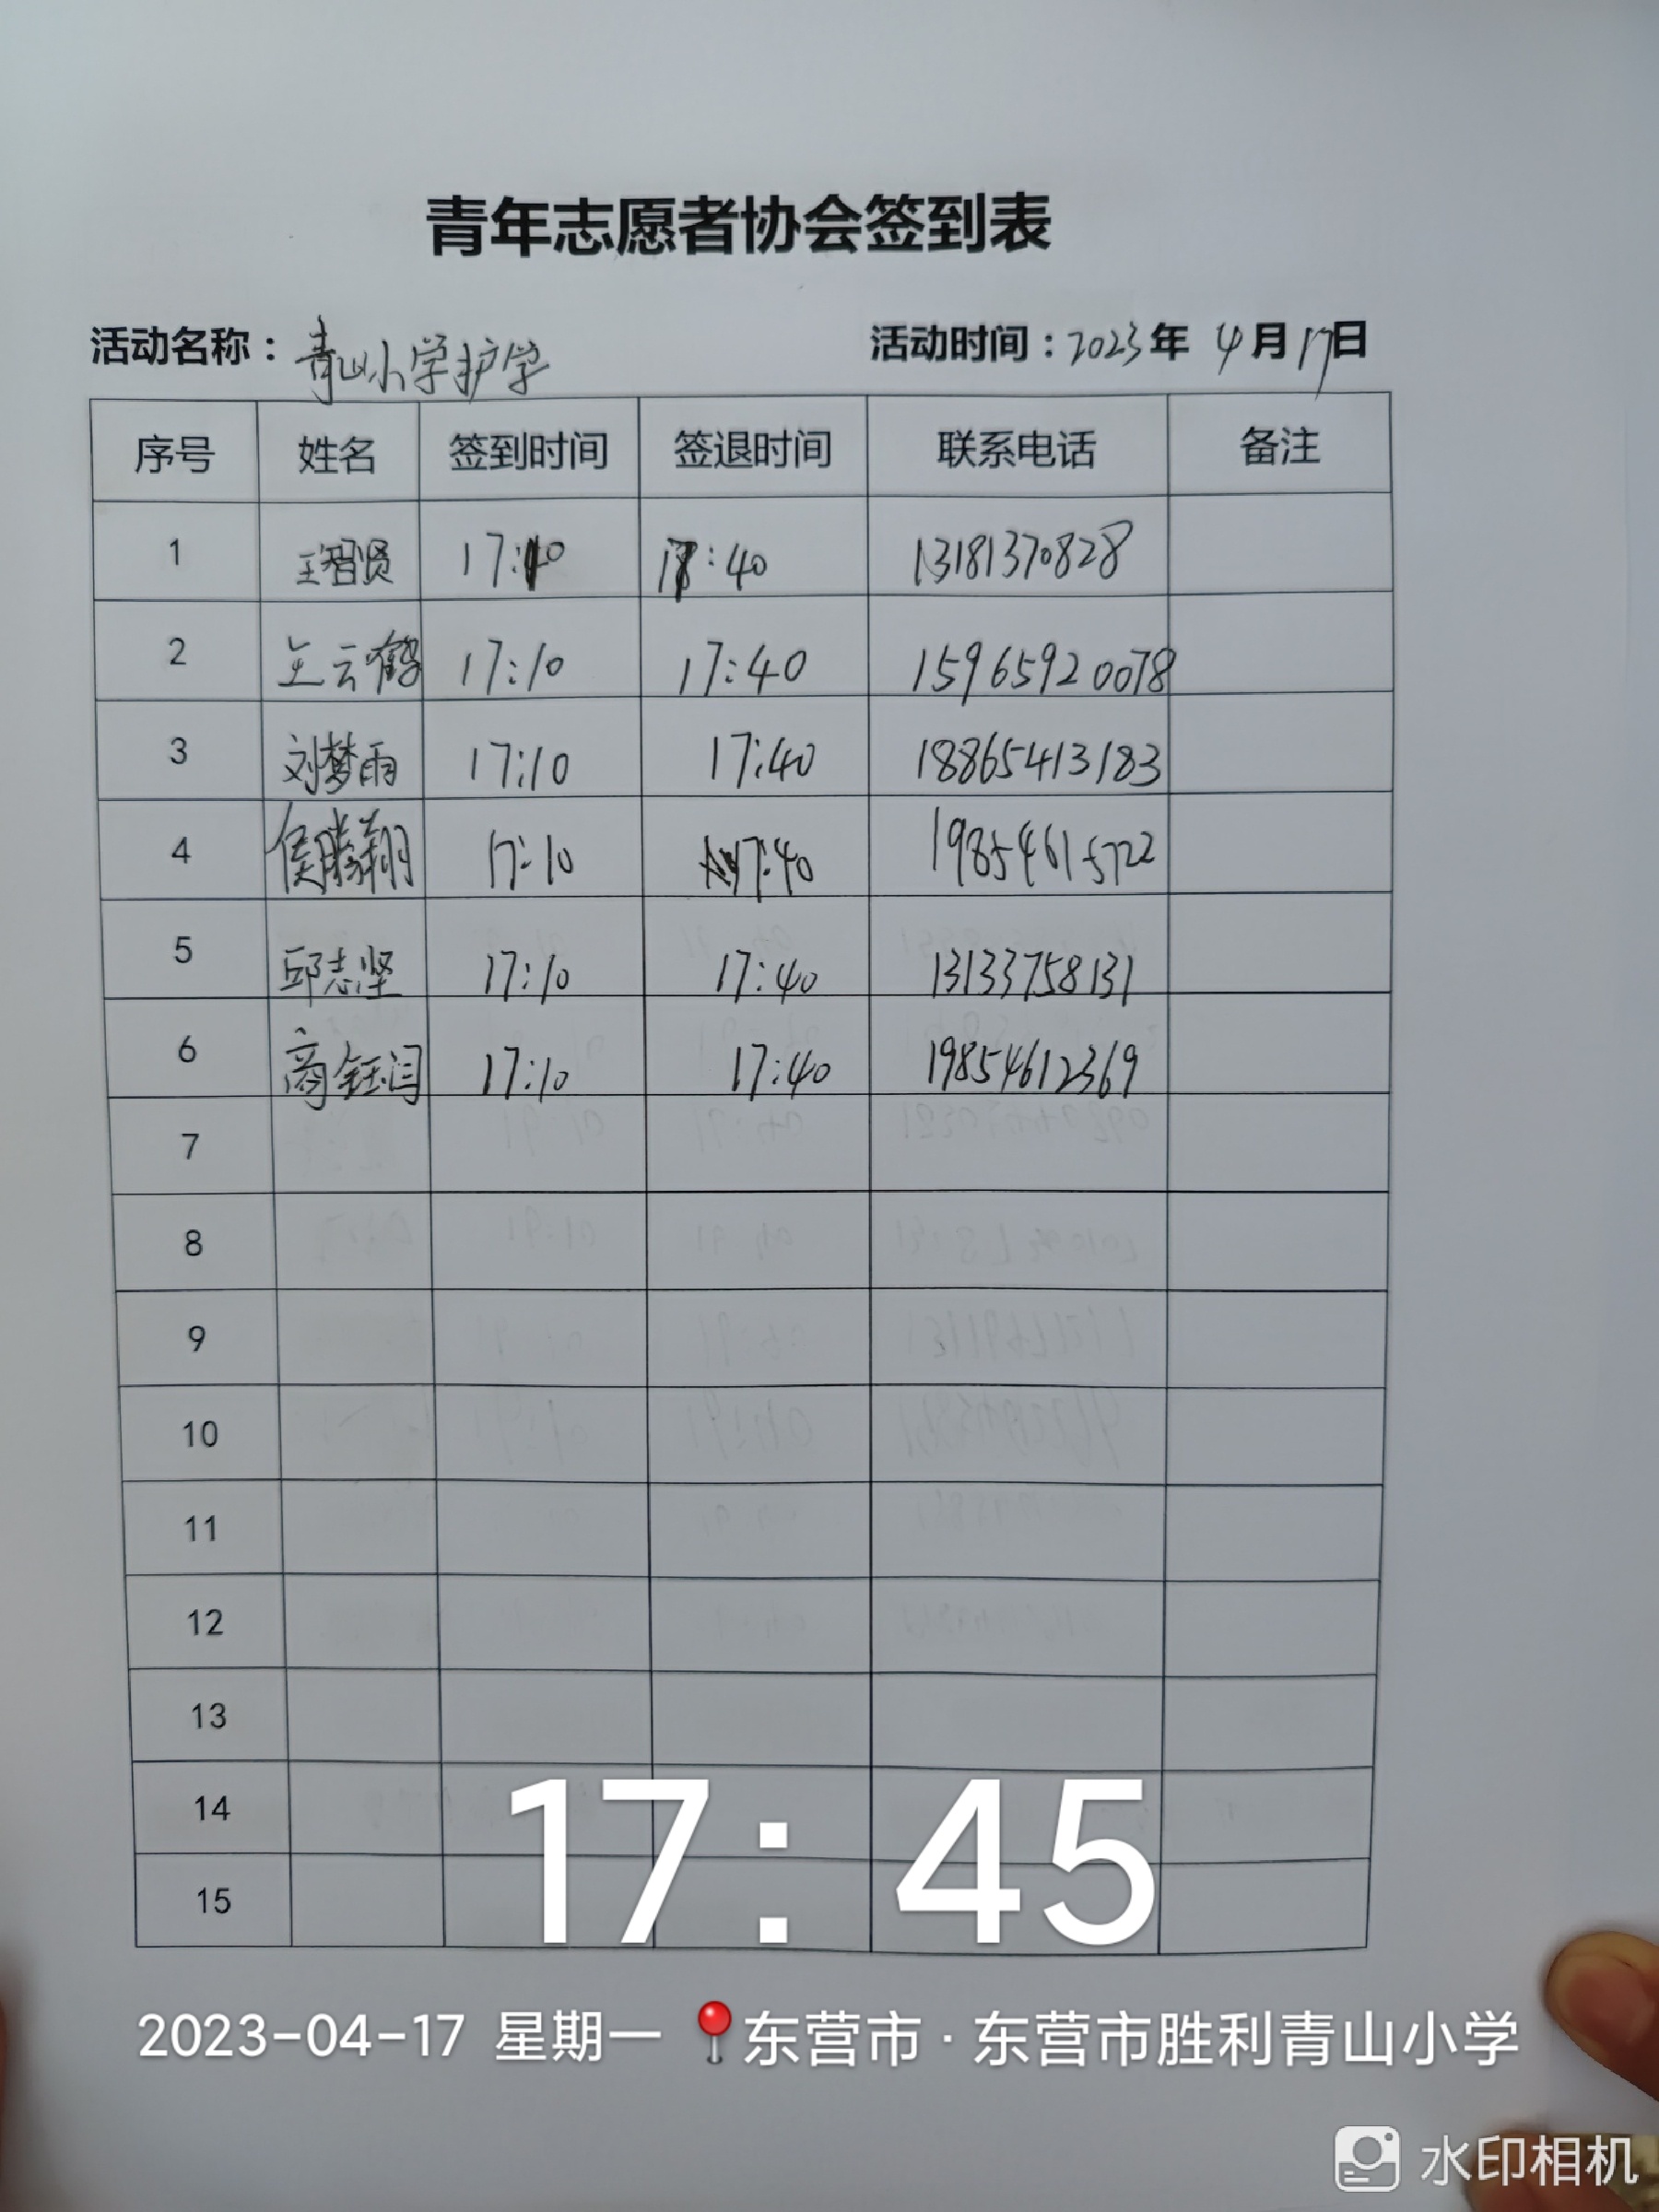 青年志愿者协会签到表
活动名称：青山小学护学 活动时间：2023年 4月17日
序号 姓名 签到时间 签退时间 联系电话 备注
1 王智贤 17:10 17:40 13181370828
2 王云鹤 17:10 17:40 15965920078
3 刘梦雨 17:10 17:40 18865413183
4 侯腾翔 17:10 17:40 19854615722
5 邱志坚 17:10 17:40 13133758131
6 商钰闫 17:10 17:40 19854612369
7
8
9
10
11
12
13
14
15
17:45
2023-04-17 星期一 东营市·东营市胜利青山小学
水印相机